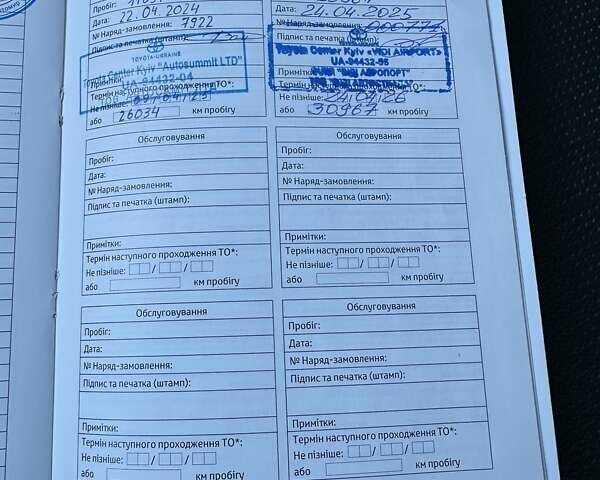 Пробіг:
Дата: 22.04.2024
№ Наряд-замовлення: 7922
Підпис та печатка (штамп):
TOYOTA-UKRAINE
Toyota Center Kyiv "Autosummit LTD"
UA-94432-04
Примітки:
Термін наступного проходження ТО*:
Не пізніше:
або 26034 км пробігу
Дата: 24.04.2025
№ Наряд-замовлення:
Підпис та печатка (штамп):
Toyota Center Kyiv «VIDI AIRPORT»
UA-94432-95
Примітки:
АЕРОПОРТ"
Термін наступного проходження ТО*:
Не пізніше: 24/04/26
або 30967 км пробігу
Обслуговування
Пробіг:
Дата:
№ Наряд-замовлення:
Підпис та печатка (штамп):
Примітки:
Термін наступного проходження ТО*:
Не пізніше: / /
або км пробігу
Обслуговування
Пробіг:
Дата:
№ Наряд-замовлення:
Підпис та печатка (штамп):
Примітки:
Термін наступного проходження ТО*:
Не пізніше: / /
або км пробігу
Обслуговування
Пробіг:
Дата:
№ Наряд-замовлення:
Підпис та печатка (штамп):
Примітки:
Термін наступного проходження ТО*:
Не пізніше: / /
або км пробігу
Обслуговування
Пробіг:
Дата:
№ Наряд-замовлення:
Підпис та печатка (штамп):
Примітки:
Термін наступного проходження ТО*:
Не пізніше: / /
або км пробігу